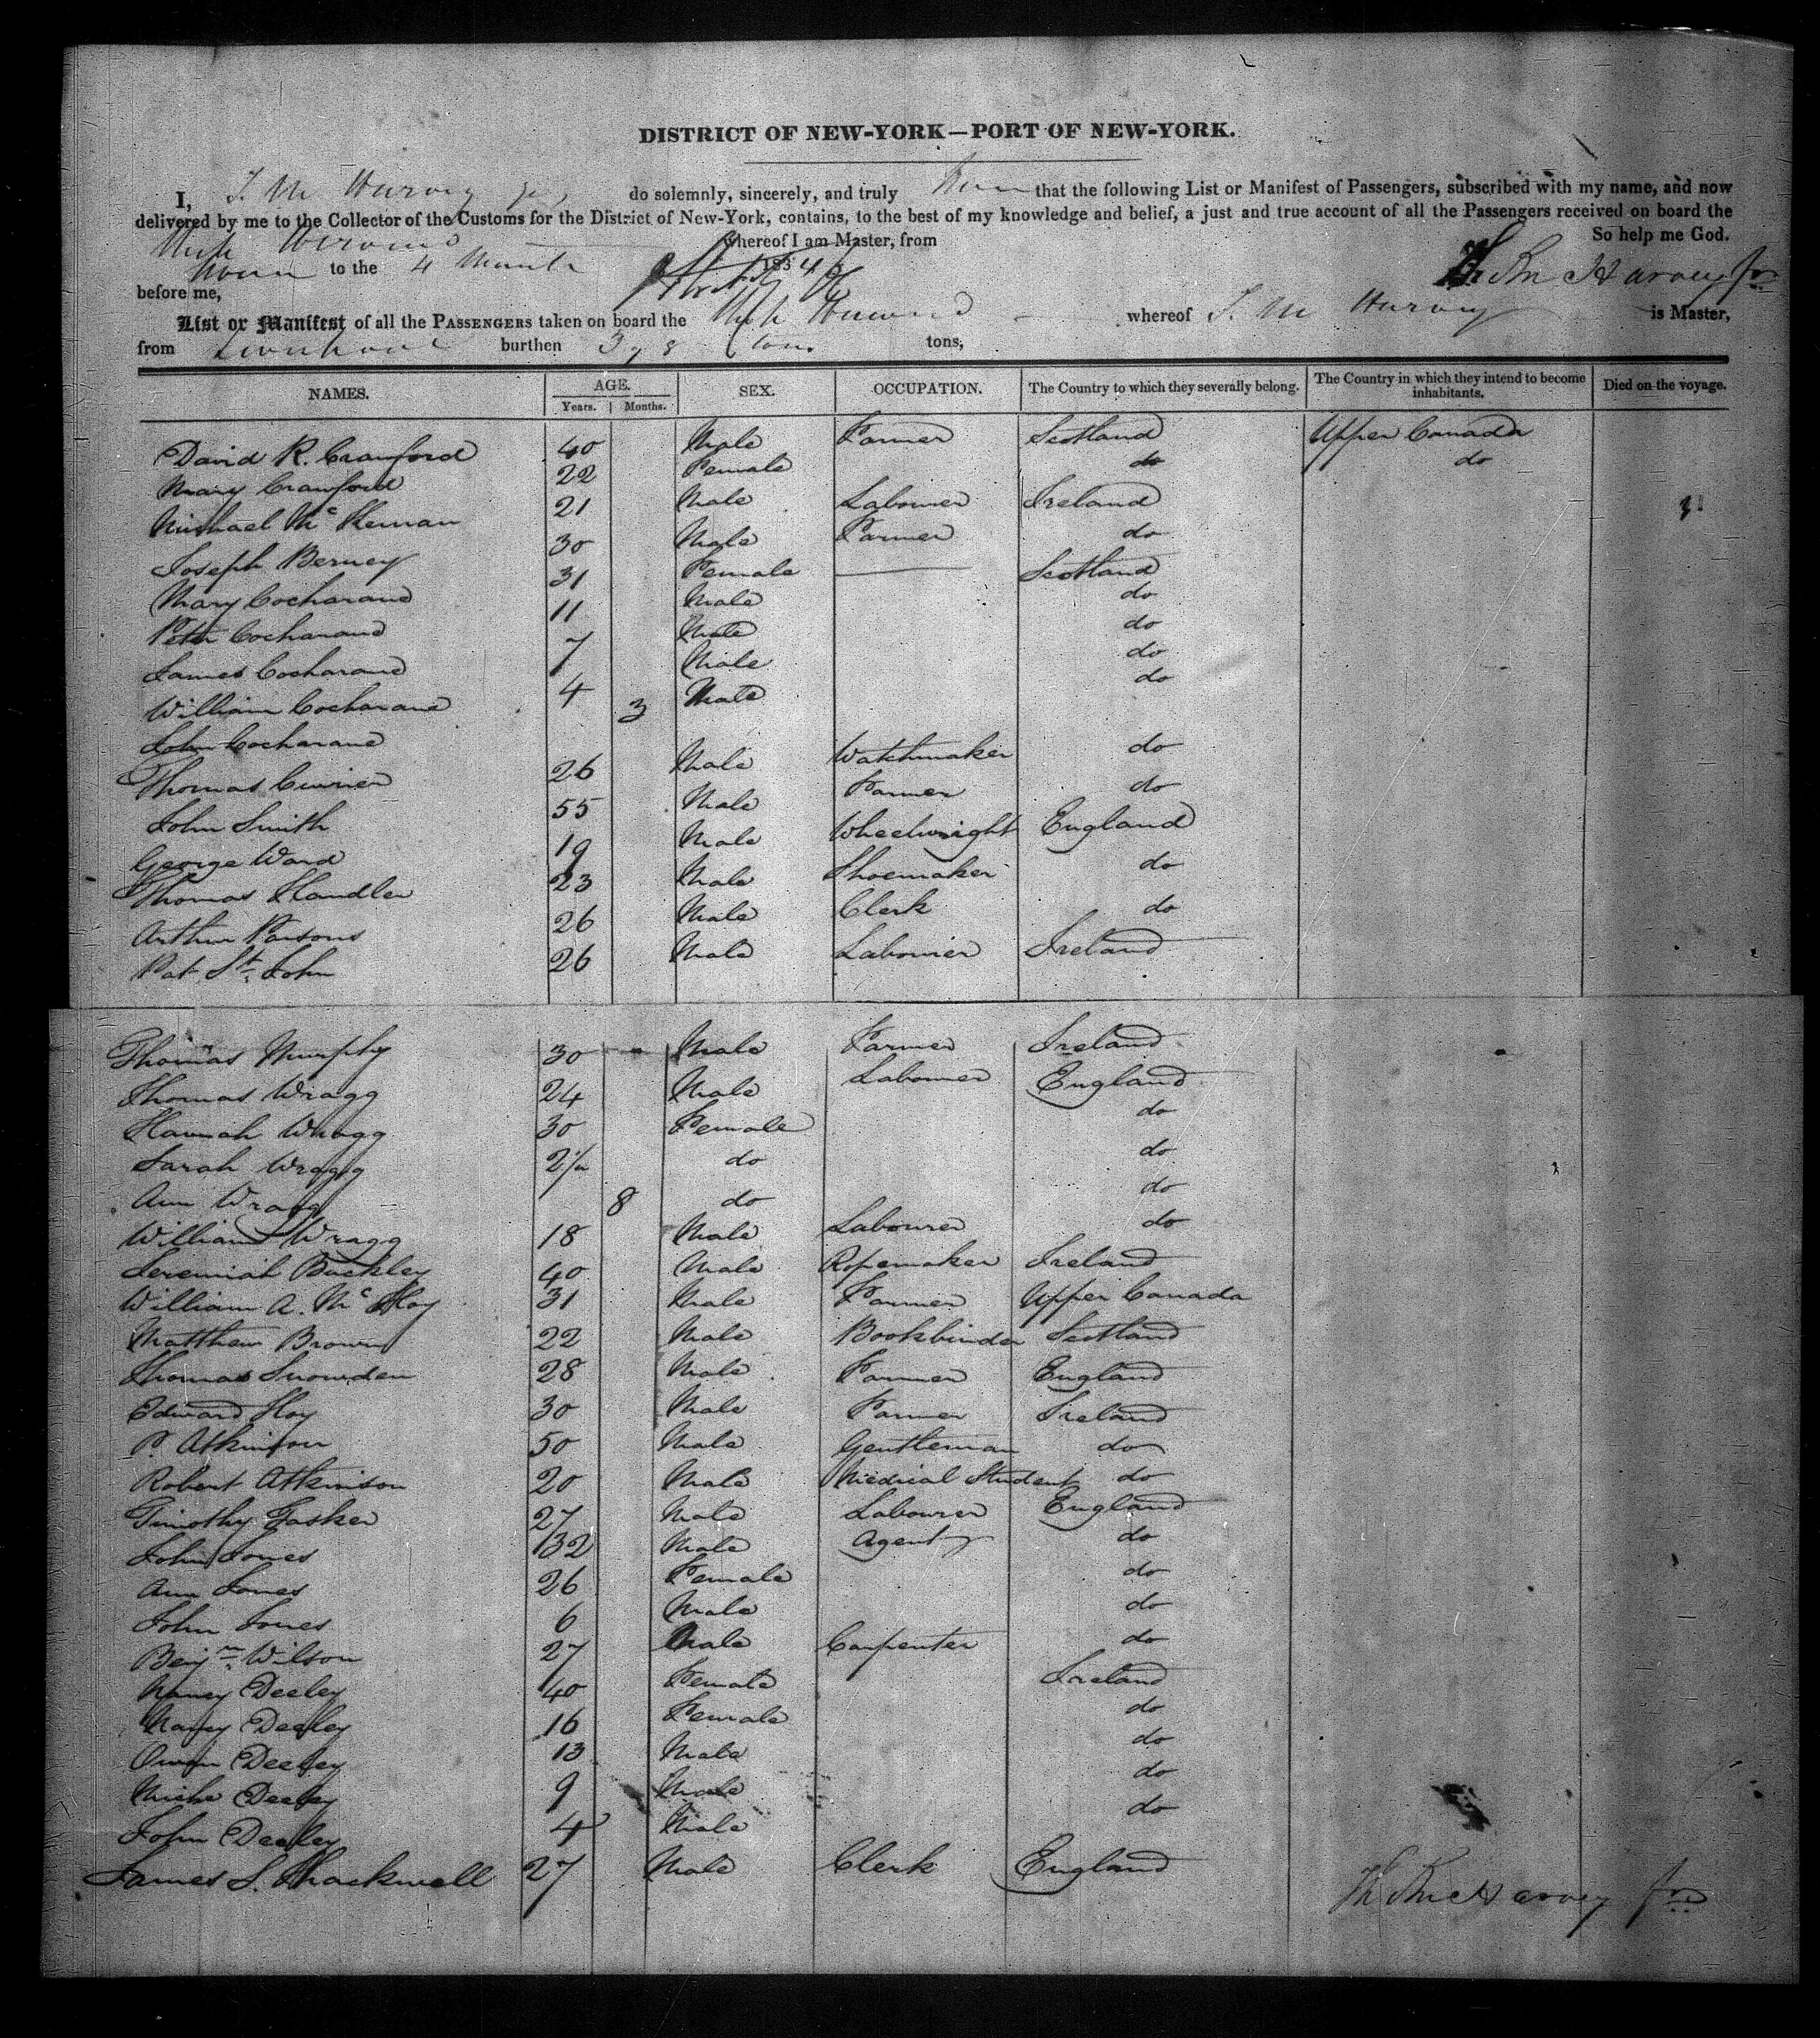 DISTRICT OF NEW-YORK—PORT OF NEW-YORK.
I, do solemnly, sincerely, and truly that the following List or Manifest of Passengers, subscribed with my name, and now
delivered by me to the Collector of the Customs for the District of New-York, contains, to the best of my knowledge and belief, a just and true account of all the Passengers received on board the
whereof I am Master, from So help me God.
to the 4 183
before me,
List or Manifest of all the PASSENGERS taken on board the whereof Harvey is Master,
from Liverpool burthen tons,
NAMES. AGE. SEX. OCCUPATION. The Country to which they severally belong. The Country in which they intend to become inhabitants. Died on the voyage.
Years. Months.
David R. Crawford 40 Male Farmer Scotland Upper Canada
Mary Crawford 22 Female do do
Michael Mc 21 Male Labourer Ireland
Joseph Berney 30 Male Farmer do
Mary Cocharane 31 Female Scotland
Peter Cocharane 11 Male do
James Cocharane 7 Male do
William Cocharane 4 Male do
John Cocharane 3 Male do
Thomas Currier 26 Male Watchmaker do
John Smith 55 Male Farmer do
George Ward 19 Male Wheelwright England
Thomas Handler 23 Male Shoemaker do
Arthur Parsons 26 Male Clerk do
Pat St. John 26 Male Labourier Ireland
Thomas Murphy 30 Male Farmer Ireland
Thomas Wragg 24 Male Labourer England
Hannah Wragg 30 Female do
Sarah Wragg 2½ do do
Ann Wragg 8 do do
William Wragg 18 Male Labourer do
Jeremiah Buckley 40 Male Ropemaker Ireland
William A. Mc 31 Male Farmer Upper Canada
Matthew Brown 22 Male Bookbinder Scotland
Thomas Snowden 28 Male Farmer England
Edward Hoy 30 Male Farmer Ireland
P. Atkinson 50 Male Gentleman do
Robert Atkinson 20 Male Medical Student do
Timothy Tasker 27 Male Labourer England
John Jones 32 Male Agent do
Ann Jones 26 Female do
John Jones 6 Male do
Benjn. Wilson 27 Male Carpenter do
Nancy Deeley 40 Female Ireland
Nancy Deeley 16 Female do
Owen Deeley 13 Male do
Michl Deeley 9 Male do
John Deeley 4 Male do
James S. Shackwell 27 Male Clerk England
Harvey Jnr